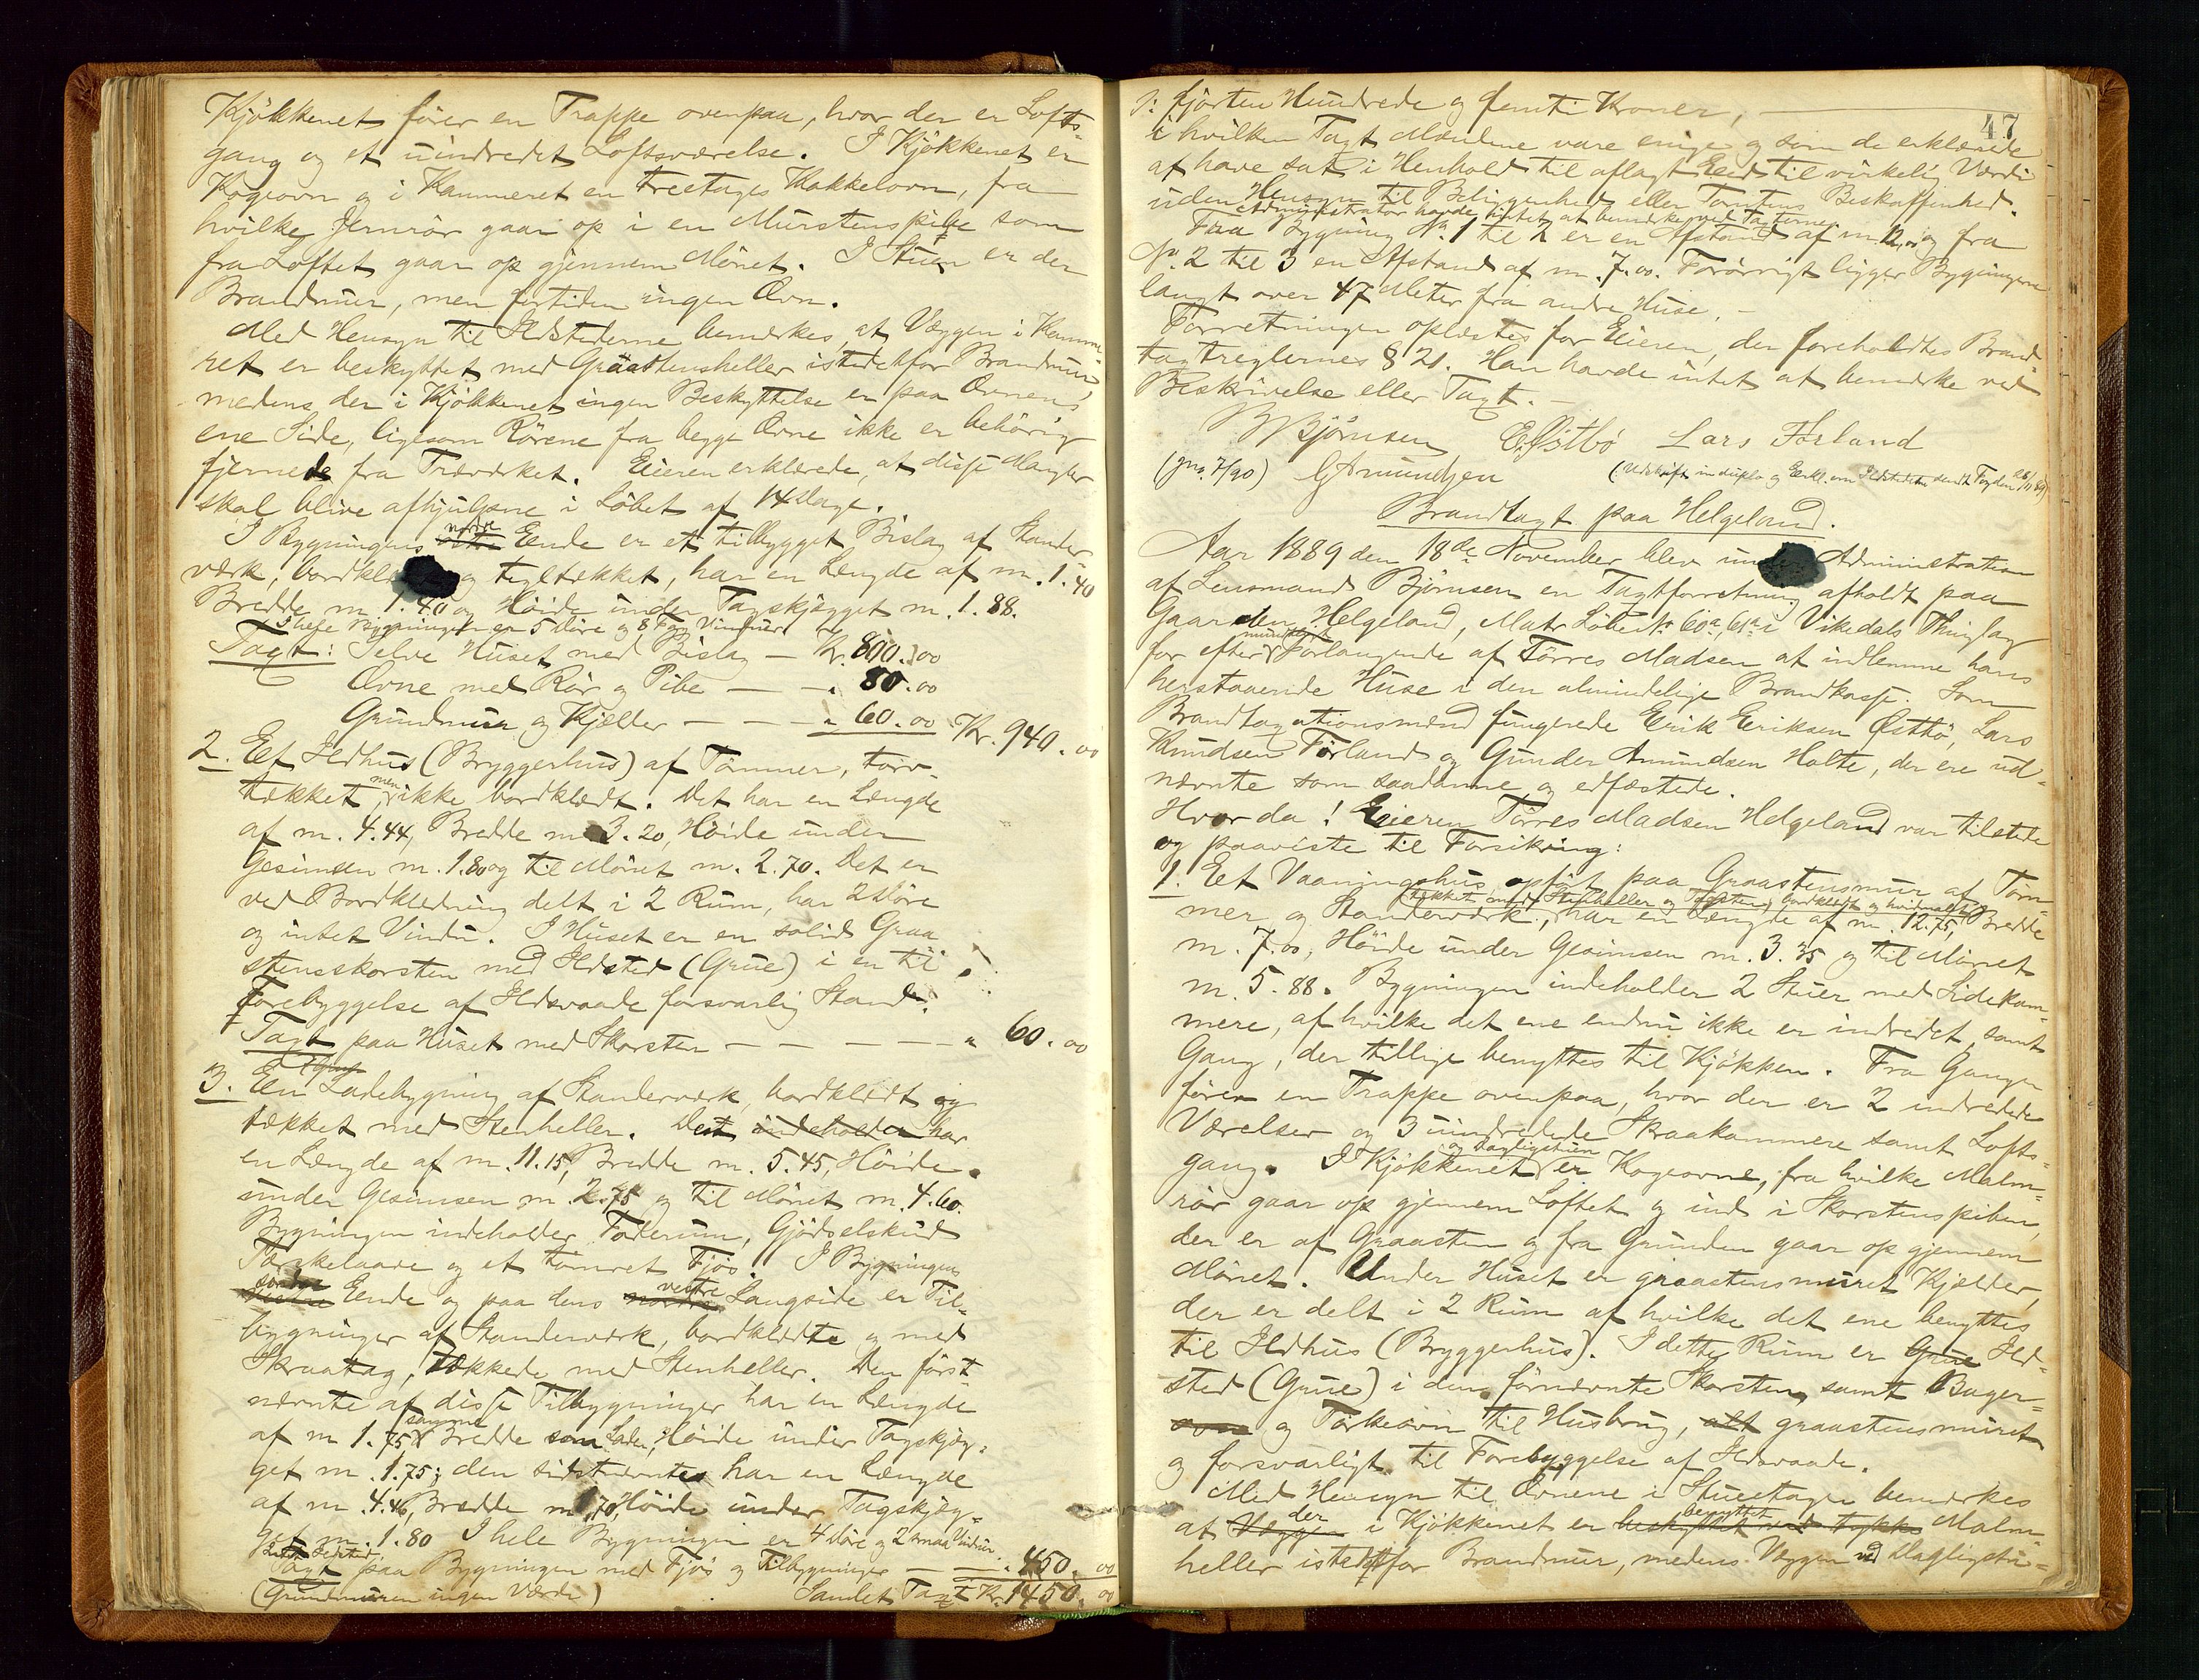 Kjøkkenet fører en Trappe ovenpaa, hvor der er Lofts-
gang og et uindredet Loftsværelse. I Kjøkkenet er
Kogeovn og i Kammeret en treetages Kakkelovn, fra
hvilke Jernrör gaar op i en Murstenspibe som
fra Loftet gaar op gjennem Mönet. I Stuen er der
Brandmur, men fortiden ingen Ovn.
Med Hensyn til Ildstederne bemærkes, at Væggen i Kamme-
ret er beskyttet med Graastensheller istedetfor Brandmur,
medens der i Kjökkenet ingen Beskyttelse er paa Ovnens
ene Side, ligesom Rörene fra begge Ovne ikke er behörig
fjernede fra Træværket. Eieren erklærede, at disse Mangler
skal blive afhjulpne i Löbet af 14 Dage.
I Bygningens nordre Ende er et tilbygget Bislag af Stander
værk, bordklædt og tegltækket, har en Længde af m. 1.40
Bredde m 1.40 og Höide under Tagskjægget m. 1.88.
I hele Bygningen er 5 Döre og 8 Fag Vinduer
Taxt: Selve Huset med Bislag — Kr. 800.00
Ovne med Rör og Pibe — — " 80.00
Grundmur og Kjælder — — — " 60.00 Kr. 940.00
2. Eet Ildhus (Bryggerhus) af Tömmer, torv-
tækket, men ikke bordklædt. Det har en Længde
af m. 4.44, Bredde m 3.20, Höide under
Gesimsen m. 1.80 og til Mönet m. 2.70. Det er
ved Bordklædning delt i 2 Rum, har 2 Döre
og intet Vindu. I Huset er en solid Graa
stensskorsten med Ildsted (Grue) i en til
Forebyggelse af Ildsvaade forsvarlig Stand.
Taxt paa Huset med Skorsten — — — — — " 60.00
3. Een Ladebygning af Standerværk, bordklædt og
tækket med Stenheller. Den indeholder har
en Længde af m. 11.15, Bredde m. 5.45, Höide
under Gesimsen m 2.75 og til Mönet m. 4.60.
Bygningen indeholder Foderum, Gjödselskud
Tærskelaave og et tömret Fjös. I Bygningens
söndre Ende og paa dens nordre vestre Langside er Til-
bygninger af Standerværk, bordklædte og med
Skraatag, tækkede med Stenheller. Den först-
nævnte af disse Tilbygninger har en Længde
af m 1.75, samme Bredde som Laden, Höide under Tagskjæg-
get m. 1.75; den sidstnævnte har en Længde
af m 4.46, Bredde m 1.70, Höide under Tagskjæg-
get m. 1.80 I hele Bygningen er 4 Döre og 2 smaa Vinduer.
Intet Ildsted.
Taxt paa Bygningen med Fjös og Tilbygninger — — " 450.00
(Grundmuren ingen Værdi) Samlet Taxt Kr. 1450.00
47
ɔ: fjorten Hundrede og femti Kroner, —
i hvilken Taxt Mændene vare enige og som de erklærede
at have sat i Henhold til aflagt Eed til virkelig Værdi
uden Hensyn til Beliggenhed eller Tomtens Beskaffenhed.
Administrator havde intet at bemærke ved Taxterne
Fra Bygning No 1 til 2 er en Afstand af m. 12.00 og fra
No 2 til 3 en Afstand af m. 7.00. Forövrigt ligger Bygningerne
langt over 47 Meter fra andre Huse. —
Forretningen oplæstes for Eieren, der foreholdtes Brand
taxtreglernes § 21. Han havde intet at bemærke ved
Beskrivelse eller Taxt. —
B Björnsen E. Østbö Lars Förland
G Amundsen (Udskrift in duplo og Erkl. om Ildstederne sendt Fogden 28/11 89)
Brandtaxt paa Helgeland.
Aar 1889 den 18de November blev under Administration
af Lensmand Björnsen en Taxtforretning afholdt paa
Gaarden Helgeland, Matr Löbe No 60a, 61a i Vikedals Thinglag
for efter mundtligt Forlangende af Törres Madsen at indlemme hans
herstaaende Huse i den almindelige Brandkasse. Som
Brandtaxationsmænd fungerede Erik Eriksen Østbö, Lars
Knudsen Förland og Gunder Amundsen Holte, der ere ud-
nævnte som saadanne og edfæstede.
Hvorda! Eieren Törres Madsen Helgeland var tilstede
og paaviste til Forsikring:
1. Eet Vaaningshus, opfört paa Graastensmur af Töm-
tækket med Stenheller og Tagsten, bordklædt og hvidmalet
mer og Standerværk, har en Længde af m. 12.75, Bredde
m. 7.00, Höide under Gesimsen m. 3.35 og til Mönet
m. 5.88. Bygningen indeholder 2 Stuer med Sidekam-
mere, af hvilke det ene endnu ikke er indredet, samt
Gang, der tillige benyttes til Kjökken. Fra Gangen
förer en Trappe ovenpaa, hvor der er 2 indredede
Værelser og 3 uindredede Skraakammere samt Lofts-
gang. I Kjökkenet og Dagligstuen er Kogeovne, fra hvilke Malm-
rör gaar op gjennem Loftet og ind i Skorstenspiben,
der er af Graasten og fra Grunden gaar op gjennem
Mönet. Under Huset er graastensmuret Kjælder,
der er delt i 2 Rum af hvilke det ene benyttes
til Ildhus (Bryggerhus). I dette Rum er Grue Ild-
sted (Grue) i den förnævnte Skorsten, samt Bager-
ovn og Törkeovn til Husbrug, alt graastensmuret
og forsvarligt til Forebyggelse af Ildsvaade.
Med Hensyn til Ovnene i Stueetagen bemærkes
at Væggen der i Kjökkenet er beskyttet ved tykke benyttet Malm-
heller istedetfor Brandmur, medens Væggen ved Dagligstu-